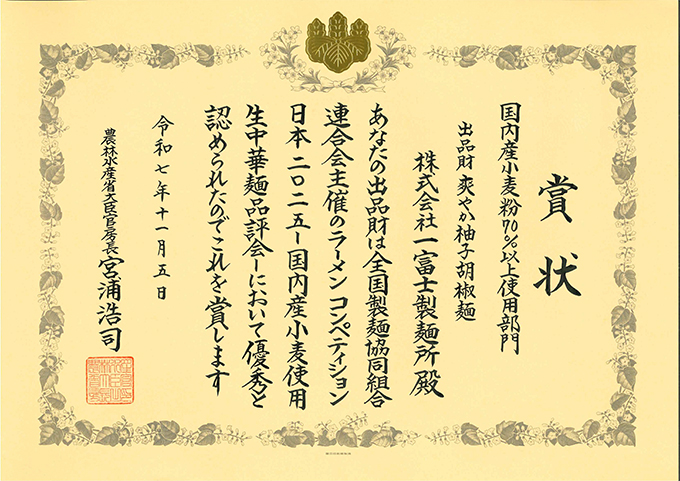 賞状
国内産小麦粉70%以上使用部門
出品財 爽やか柚子胡椒麺
株式会社一富士製麺所 殿
あなたの出品財は全国製麺協同組合
連合会主催のラーメン コンペティション
日本 二〇二五ー国内産小麦使用
生中華麺品評会ーにおいて優秀と
認められたのでこれを賞します
令和七年十一月五日
農林水産省大臣官房長 宮浦浩司